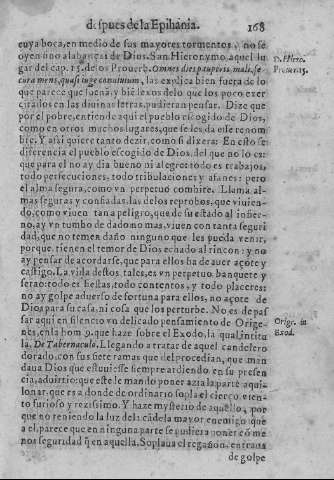 despues de la Epihania. 168
cuya boca, en medio de sus mayores tormentos, no se
oyen sino alabanças de Dios. San Hieronymo, aquel lu
D. Hiero.
gar del cap. 15. de los Prouerb. Omnes dies pauperis, malæ, se
Prouer. 15.
cura mens, quasi iuge conuiuium, las explica bien fuera de lo
que parece que suena, y biē lexos delo que los poco exer
citados en las diuinas letras, pudieran pensar. Dize que
por el pobre, entiende aqui el pueblo escogido de Dios,
como en otros muchos lugares, que se les da este renom
bre. Y assi quiere tanto dezir, como si dixera: En esto se
diferencia el pueblo escogido de Dios, del que no lo es:
que para el no ay dia bueno ni alegre: todo es trabajos,
todo persecuciones, todo tribulaciones y afanes: pero
el alma segura, como vn perpetuo combite. Llama al-
mas seguras y confiadas, las delos reprobos, que viuien-
do, como viuen tan a peligro, que de su estado al infier-
no, ay vn tumbo de dado no mas, viuen con tanta seguri
dad, que no temen daño ninguno que les pueda venir,
porque tienen el temor de Dios echado al rincon: y no
ay pensar de acordarse, que para ellos ha de auer açote y
castigo. La vida destos tales, es vn perpetuo banquete y
serao: todo es fiestas, todo contentos, y todo placeres:
no ay golpe aduerso de fortuna para ellos, no açote de
Dios para su casa, ni cosa que los perturbe. No es de pas
sar aqui en silencio vn delicado pensamiento de Orige-
Orige. in
nes, en la hom. 9. que haze sobre el Exodo, la qual intitu
Exod.
la, De Tabernaculo. Llegando a tratar de aquel candelero
dorado, con sus siete ramas que del procedian, que man
daua Dios que estuuiesse siempre ardiendo en su presen
cia, aduirtio: que este le mando poner azia la parte aqui-
lonar, que es a donde de ordinario sopla el cierço, vien-
to furioso y rezissimo. Y haze mysterio de aquesto, por
que no teniendo la luz dela cãdela mayor enemigo que
a el, parece que en ninguna parte se pudiera poner cõ me
nos seguridad q̃ en aquella. Soplaua el regañon, entraua
de golpe